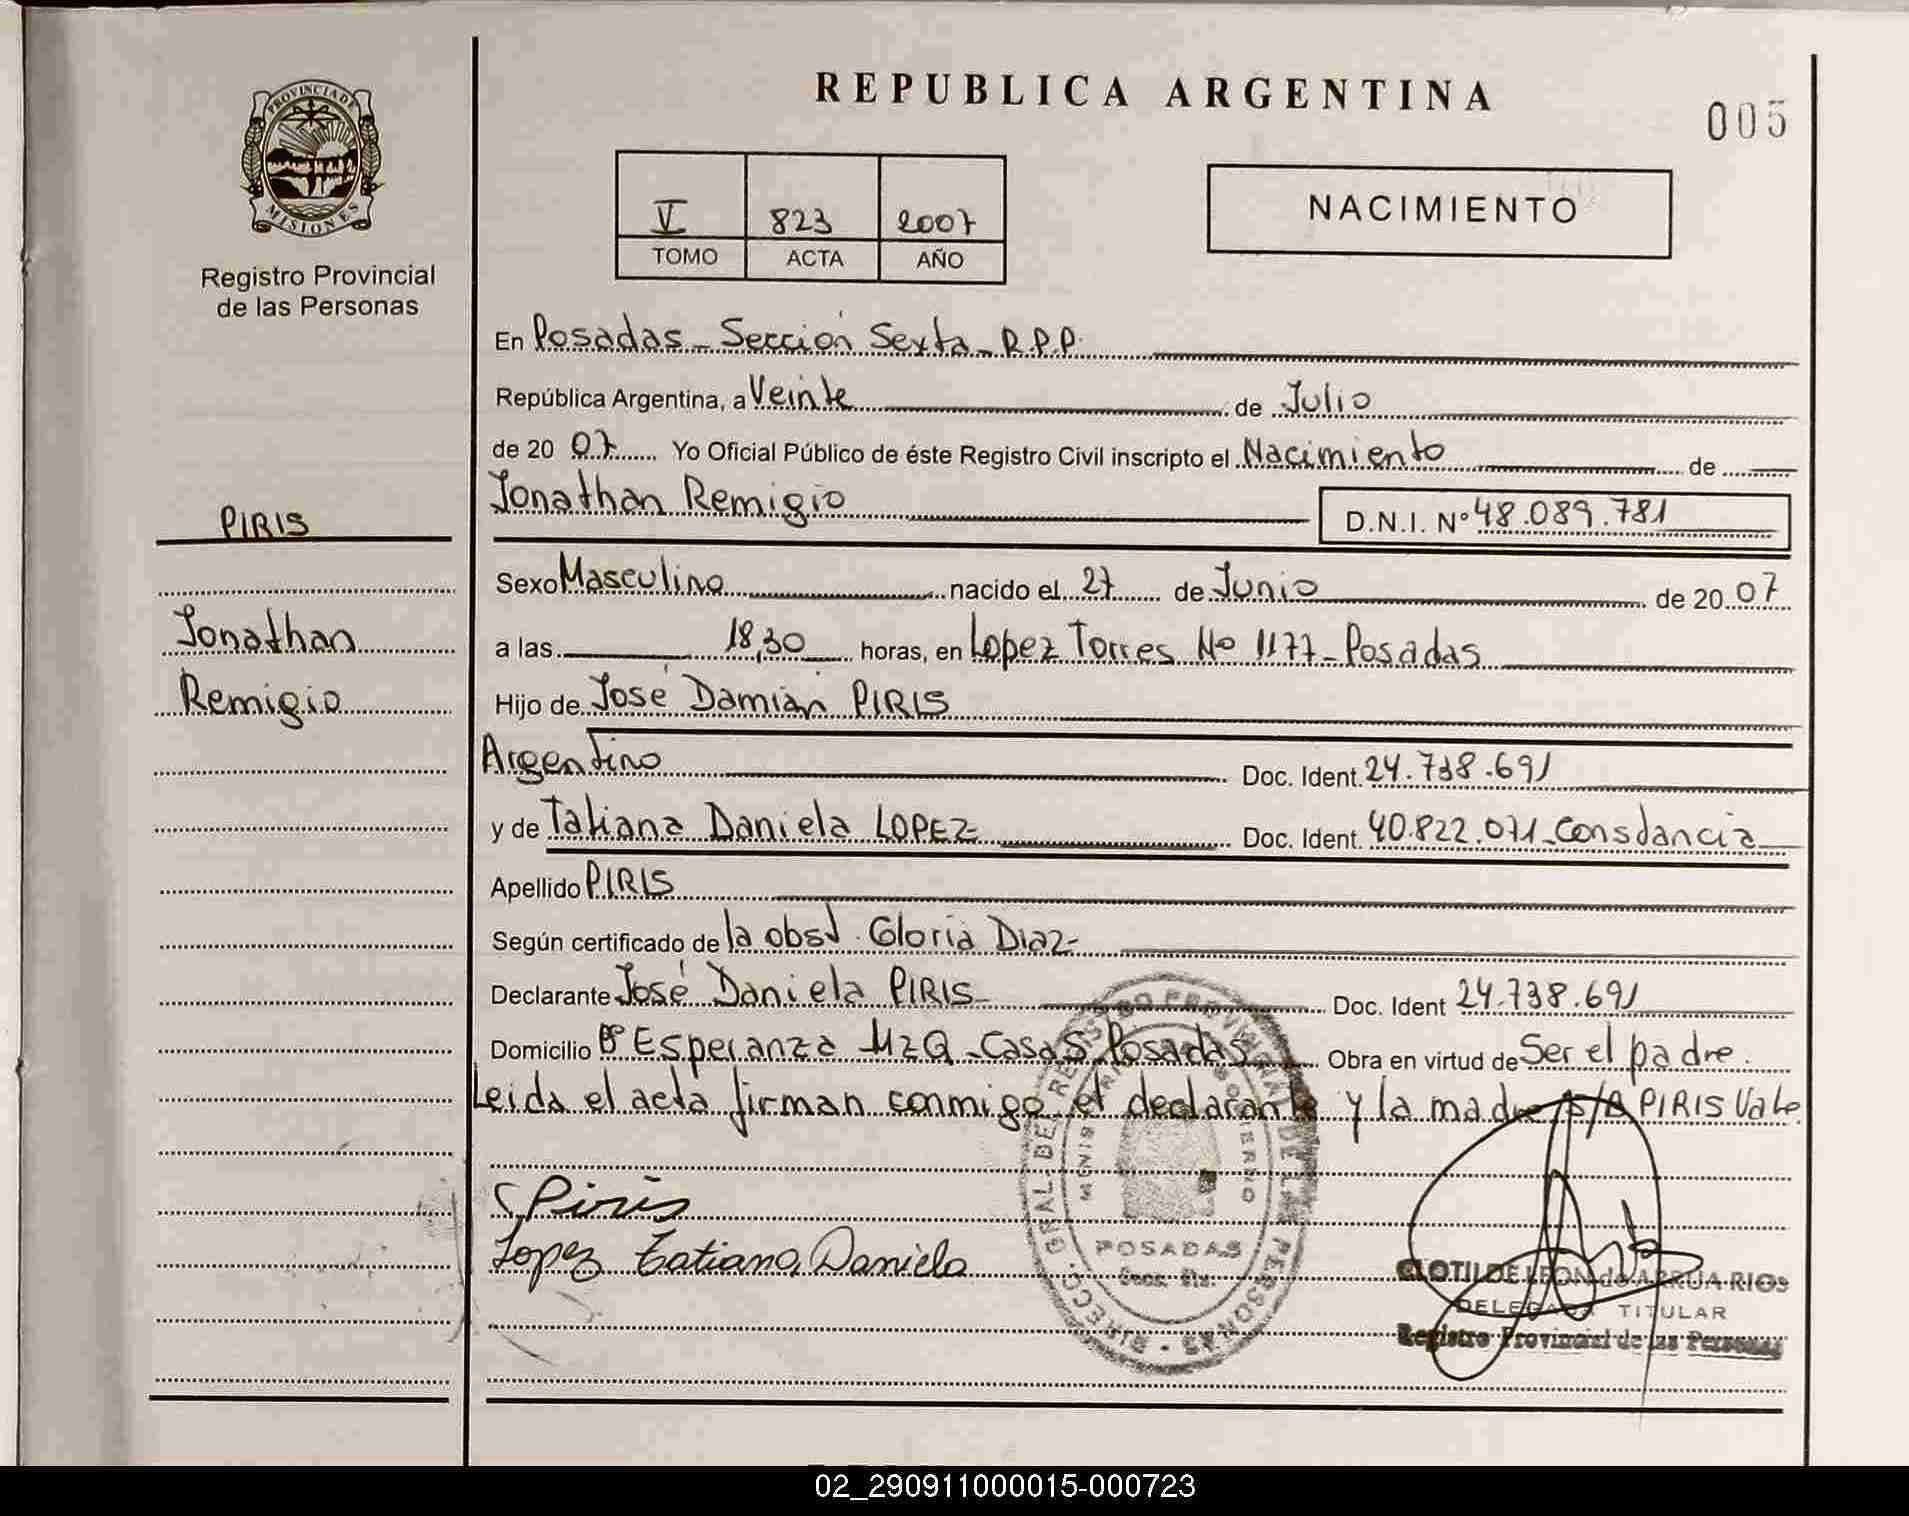 REPUBLICA ARGENTINA
005
PROVINCIA DE
MISIONES
Registro Provincial
de las Personas
V 823 2007
TOMO ACTA AÑO
NACIMIENTO
En Posadas - Sección Sexta - R.P.P.
República Argentina, a Veinte de Julio
de 20 07 Yo Oficial Público de éste Registro Civil inscripto el Nacimiento de
Jonathan Remigio D.N.I. Nº 48.089.781
PIRIS
Jonathan
Remigio
Sexo Masculino nacido el 27 de Junio de 20 07
a las 18,30 horas, en Lopez Torres Nº 1177 - Posadas
Hijo de José Damián PIRIS
Argentino Doc. Ident. 24.738.691
y de Tatiana Daniela LOPEZ Doc. Ident. 40.822.071 - Constancia
Apellido PIRIS
Según certificado de la obst. Gloria Diaz
Declarante José Daniela PIRIS Doc. Ident 24.738.691
Domicilio Bº Esperanza MzQ - Casa 5 Posadas Obra en virtud de Ser el padre.
Leida el acta firman conmigo el declarante y la madre S/R PIRIS Vale.
Piris
Lopez Tatiana Daniela
DIRECC. GRAL. DEL REGISTRO PROVINCIAL DE LAS PERSONAS
MINISTERIO GOBIERNO
POSADAS
Secc. 6ta.
CLOTILDE LEON de ARRUA RIOS
DELEGADA TITULAR
Registro Provincial de las Personas
02_290911000015-000723